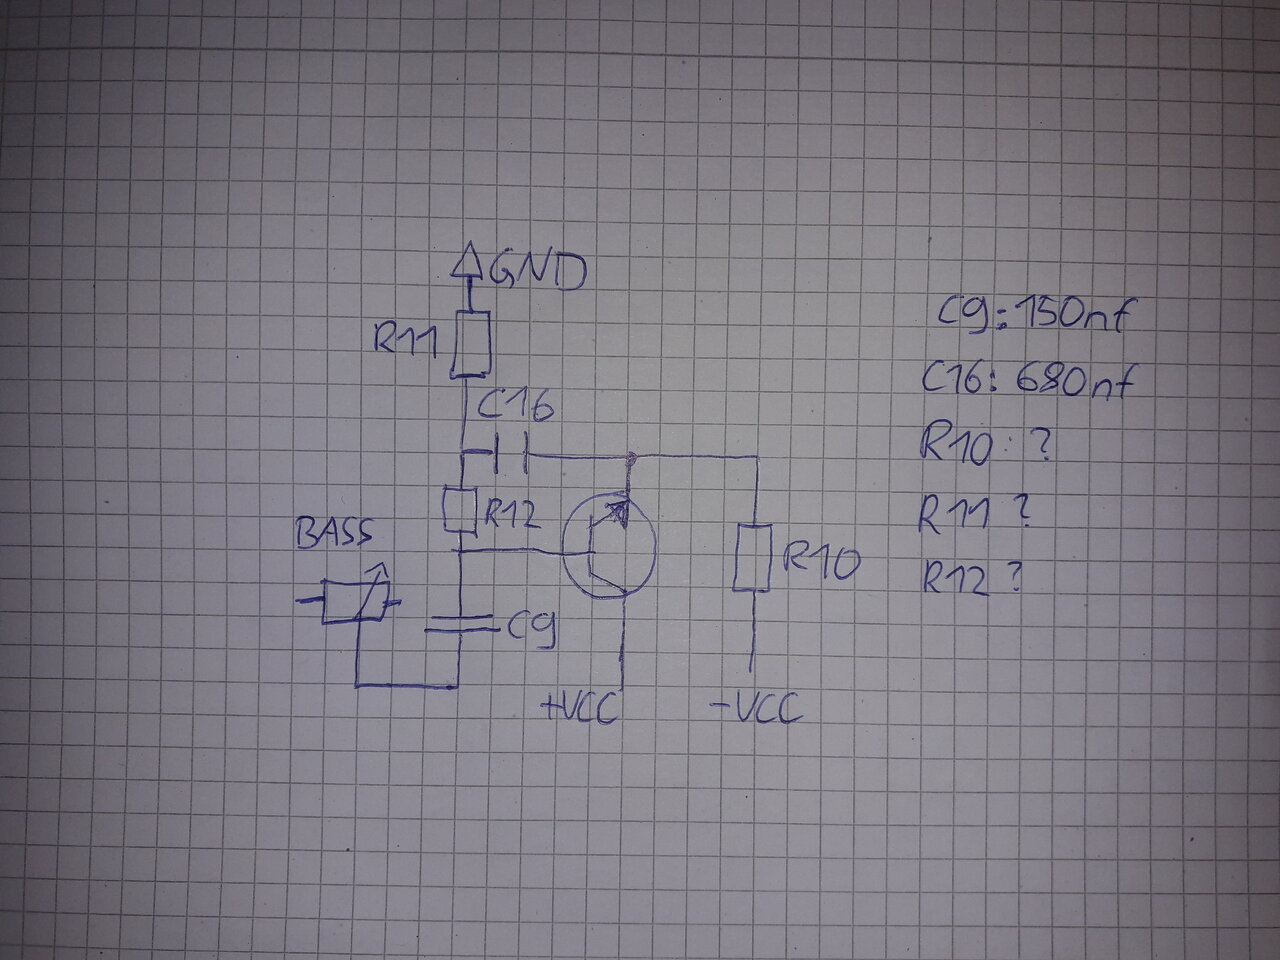 GND
R11
C16
R12
BASS
R10
C9
+VCC
-VCC
C9: 150nf
C16: 680nf
R10: ?
R11 ?
R12 ?